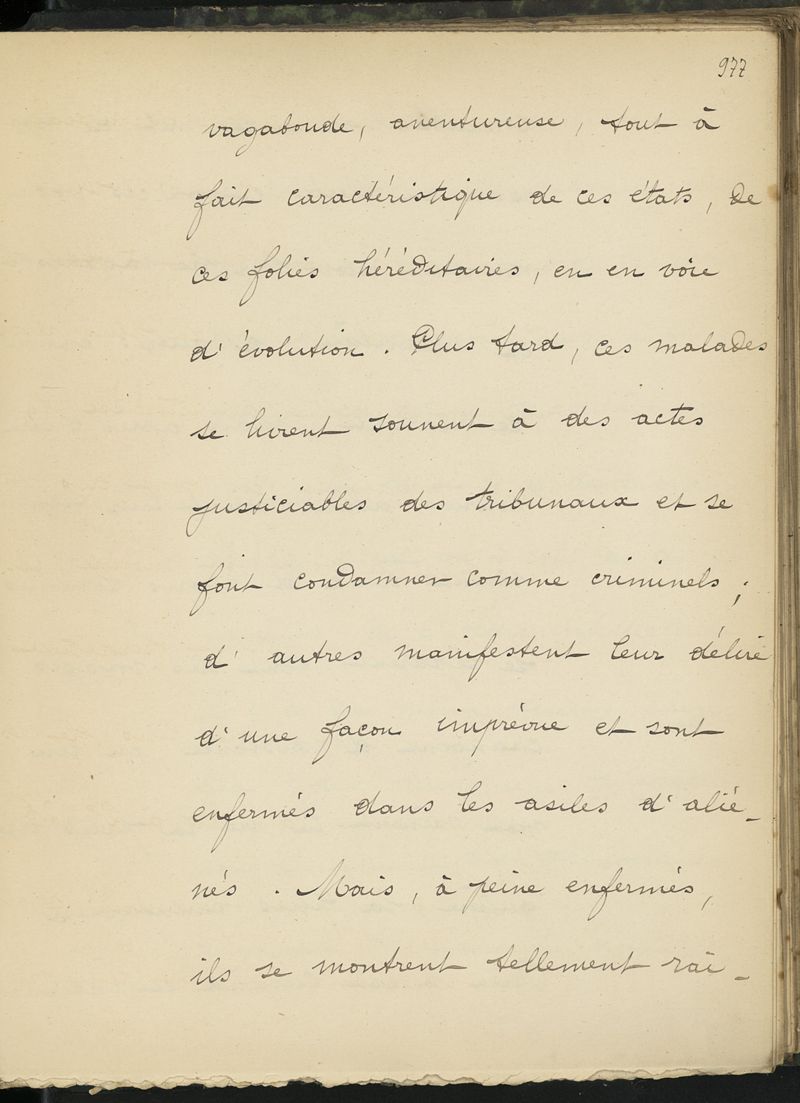 977
vagabonde, aventureuse, tout à
fait caractéristique de ces états, de
ces folies héréditaires, en en voie
d'évolution. Plus tard, ces malades
se livrent souvent à des actes
justiciables des tribunaux et se
font condamner comme criminels ;
d'autres manifestent leur délire
d'une façon imprévue et sont
enfermés dans les asiles d'alié-
nés. Mais, à peine enfermés,
ils se montrent tellement rai-